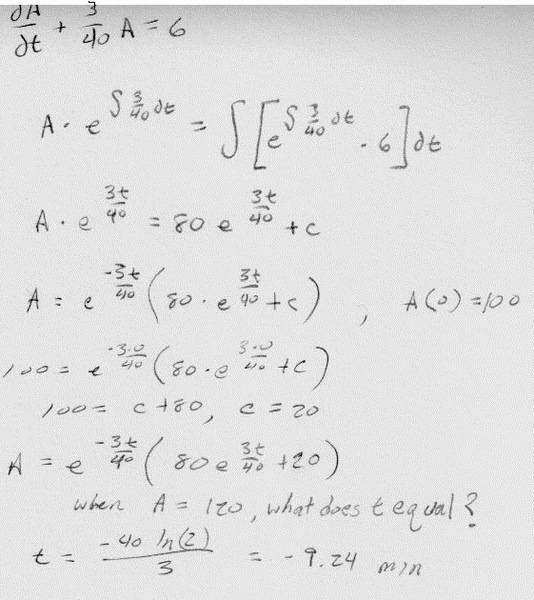 dA/dt + 3/40 A = 6
A · e^(∫ 3/40 dt) = ∫ [e^(∫ 3/40 dt) · 6] dt
A · e^(3t/40) = 80 e^(3t/40) + c
A = e^(-3t/40) (80 · e^(3t/40) + c) , A(0) = 100
100 = e^(-3·0/40) (80 · e^(3·0/40) + c)
100 = c + 80, c = 20
A = e^(-3t/40) (80 e^(3t/40) + 20)
when A = 120, what does t equal?
t = -40 ln(2)/3 = -9.24 min